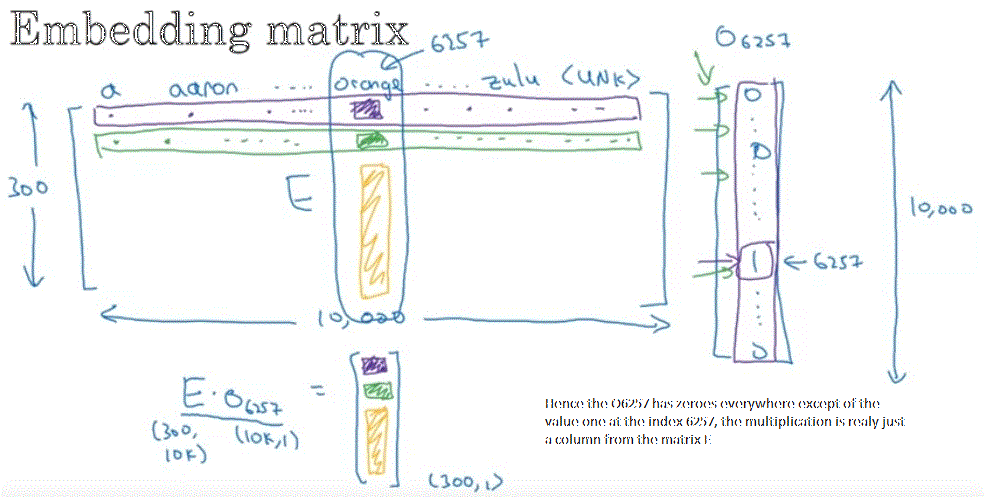 Embedding matrix
6257
O6257
a aaron .... orange .... zulu <UNK>
300
E
0
0
1 ← 6257
0
10,000
10,000
E · O6257 =
(300, 10K) (10K,1)
(300,1)
Hence the O6257 has zeroes everywhere except of the
value one at the index 6257, the multiplication is realy just
a column from the matrix E